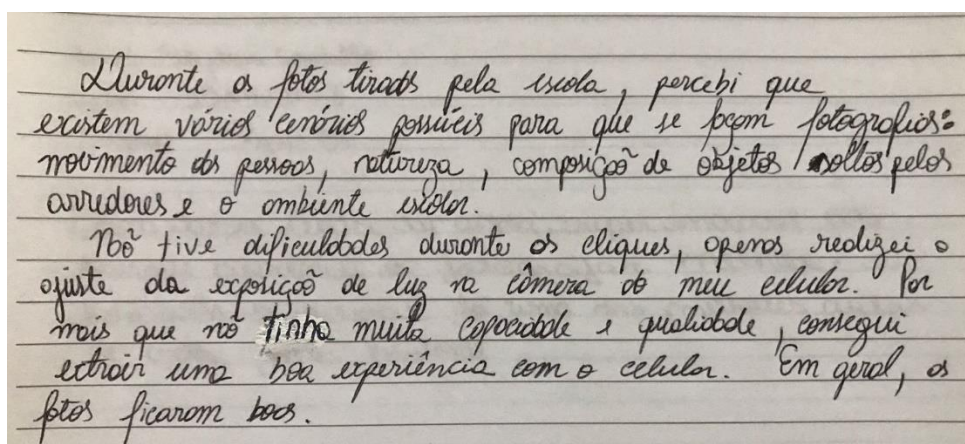 Durante as fotos tiradas pela escola, percebi que
existem vários cenários possíveis para que se façam fotografias:
movimento das pessoas, natureza, composição de objetos soltos pelos
arredores e o ambiente escolar.
Não tive dificuldades durante os cliques, apenas realizei o
ajuste da exposição de luz na câmera do meu celular. Por
mais que não tinha muita capacidade e qualidade, consegui
extrair uma boa experiência com o celular. Em geral, as
fotos ficaram boas.